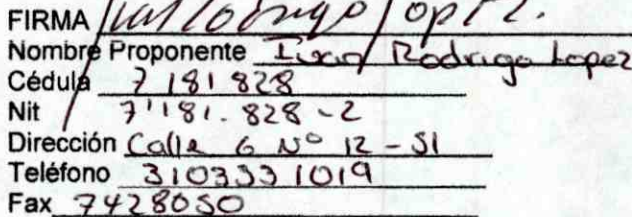 FIRMA Ivan Rodrigo Lopez.
Nombre Proponente Ivan Rodrigo Lopez
Cédula 7 181 828
Nit 7'181.828-2
Dirección Calle 6 N° 12-51
Teléfono 3103331019
Fax 7428050